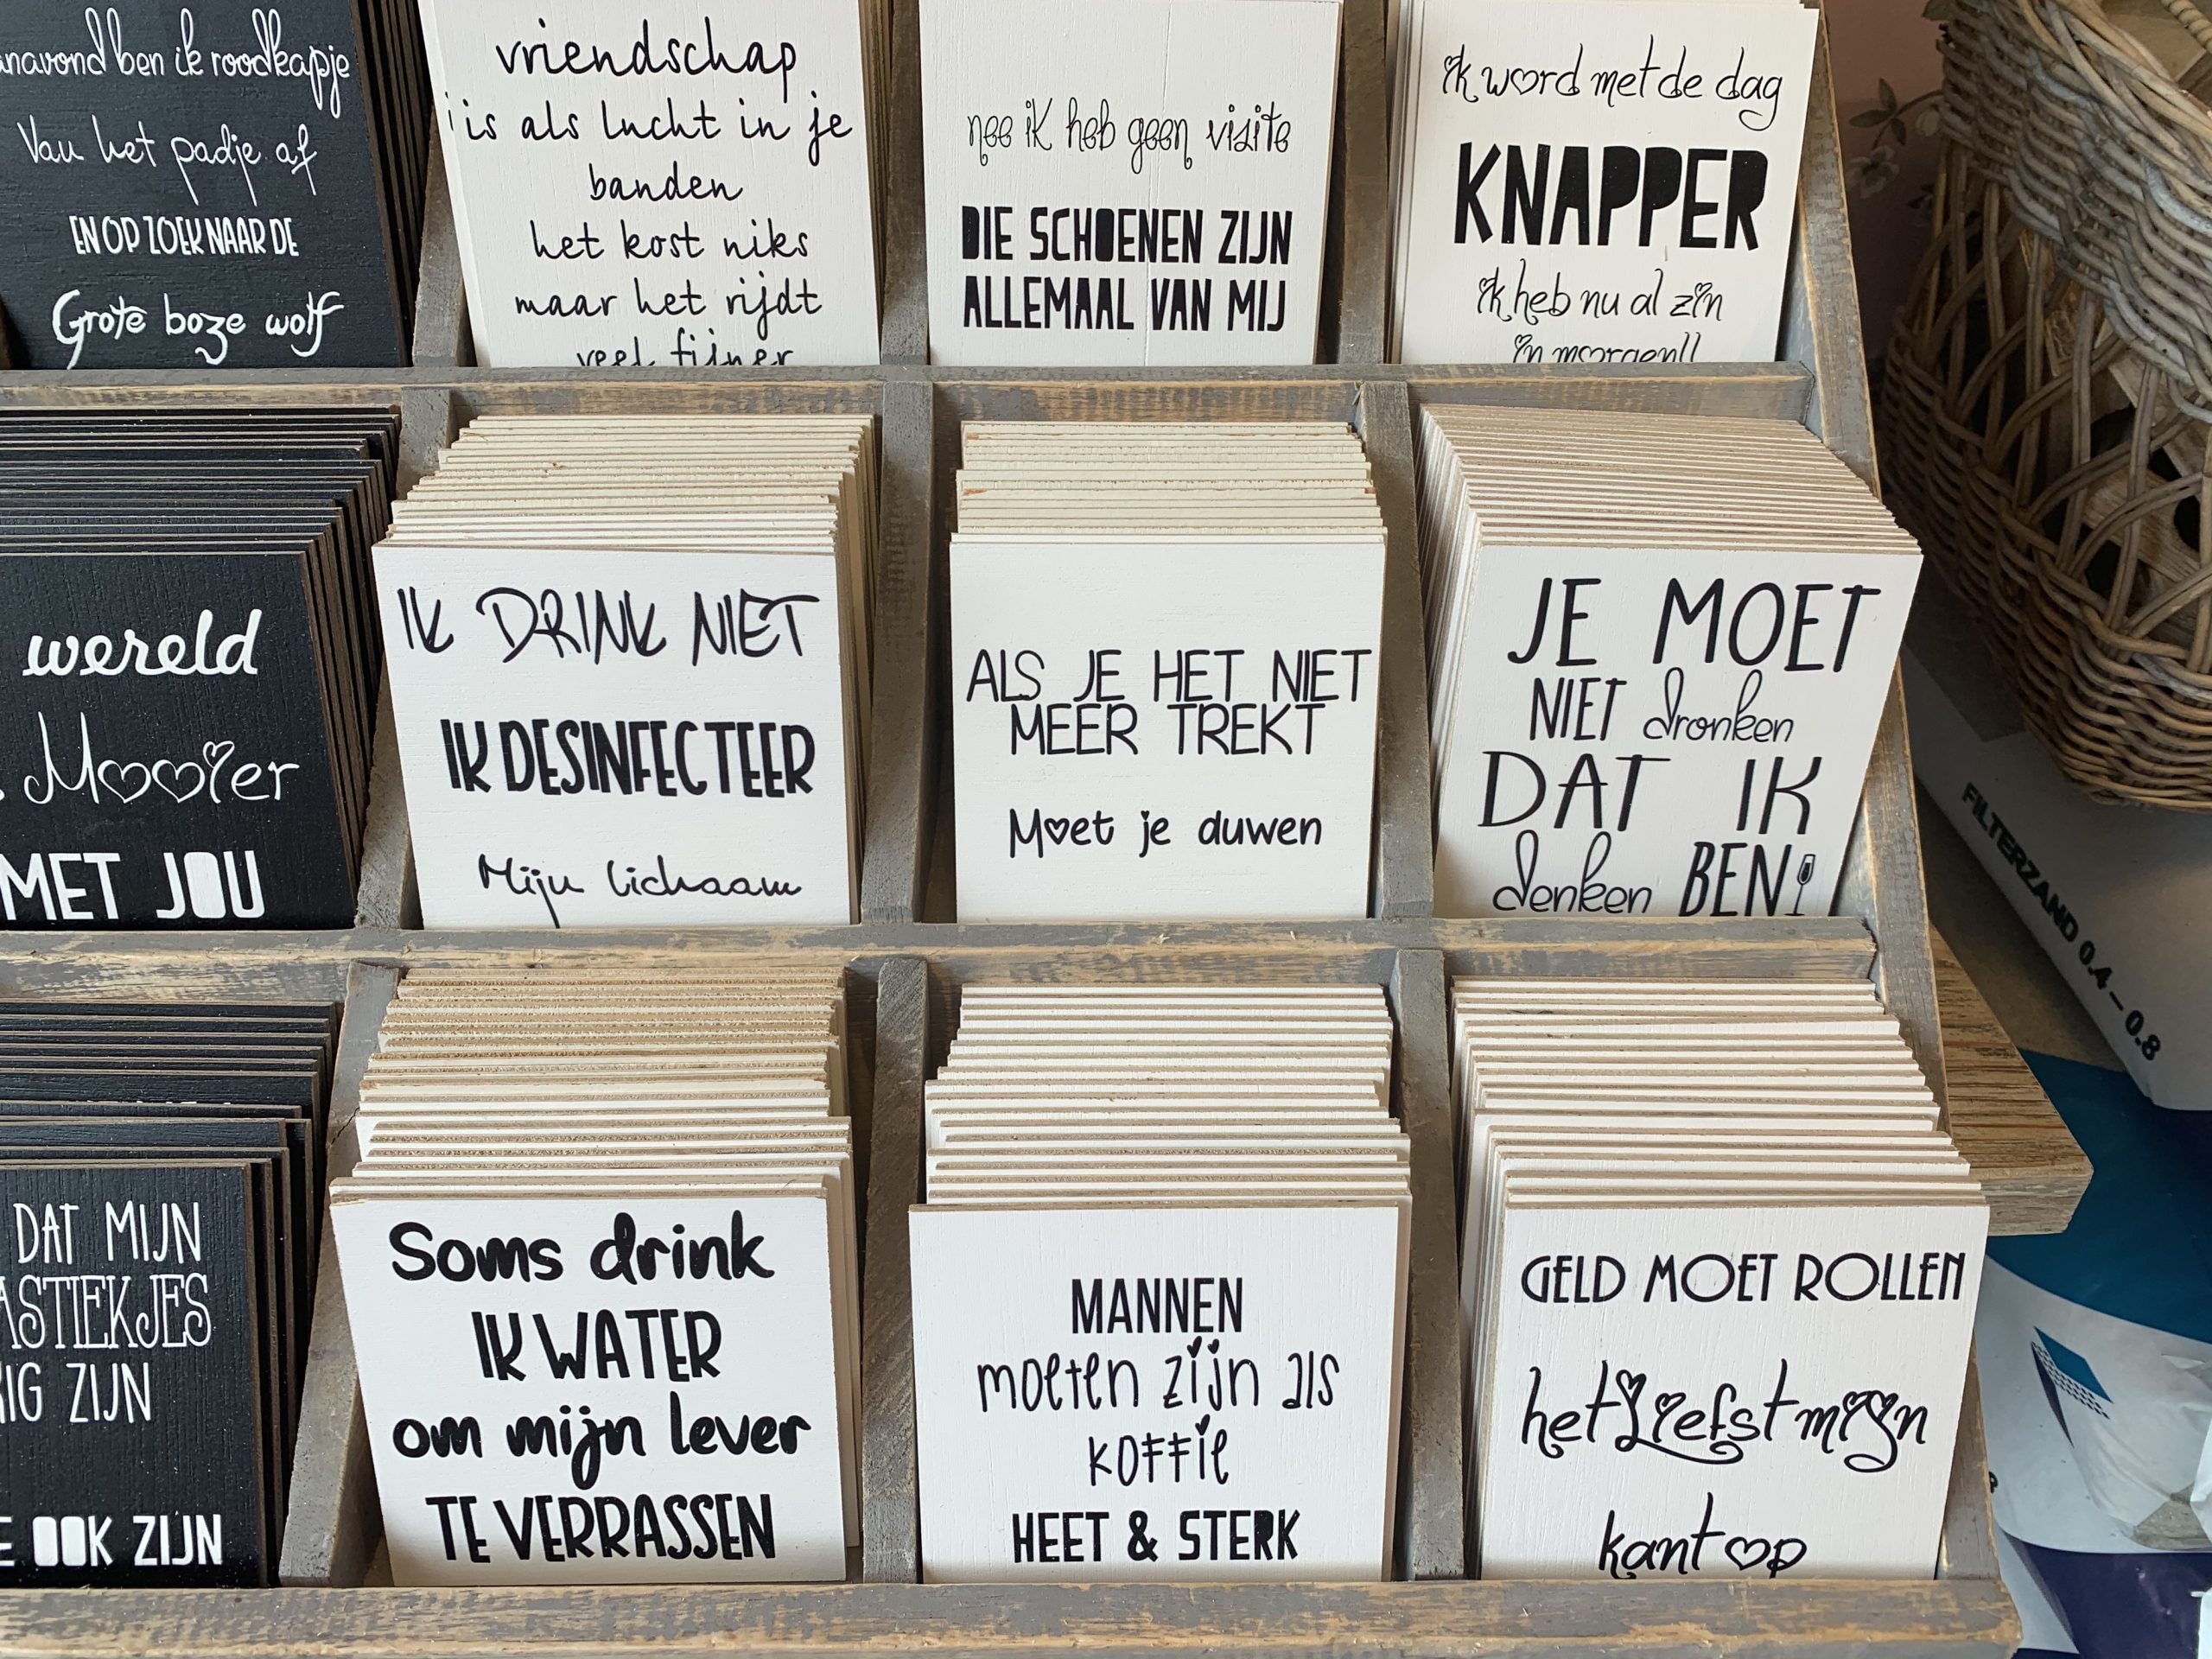 ben ik roodkapje
Van het padje af
EN OP ZOEK NAAR DE
Grote boze wolf
vriendschap
is als lucht in je
banden
het kost niks
maar het rijdt
veel fijner
nee ik heb geen visite
DIE SCHOENEN ZIJN
ALLEMAAL VAN MIJ
ik word met de dag
KNAPPER
ik heb nu al zin
in morgen!!
wereld
Mooier
MET JOU
IK DRINK NIET
IK DESINFECTEER
Mijn lichaam
ALS JE HET NIET
MEER TREKT
Moet je duwen
JE MOET
NIET dronken
DAT IK
denken BEN!
FILTERZAND 0.4 – 0.8
DAT MIJN
ASTIEKJES
IG ZIJN
E OOK ZIJN
Soms drink
IK WATER
om mijn lever
TE VERRASSEN
MANNEN
moeten zijn als
koffie
HEET & STERK
GELD MOET ROLLEN
het Liefst mijn
kant op